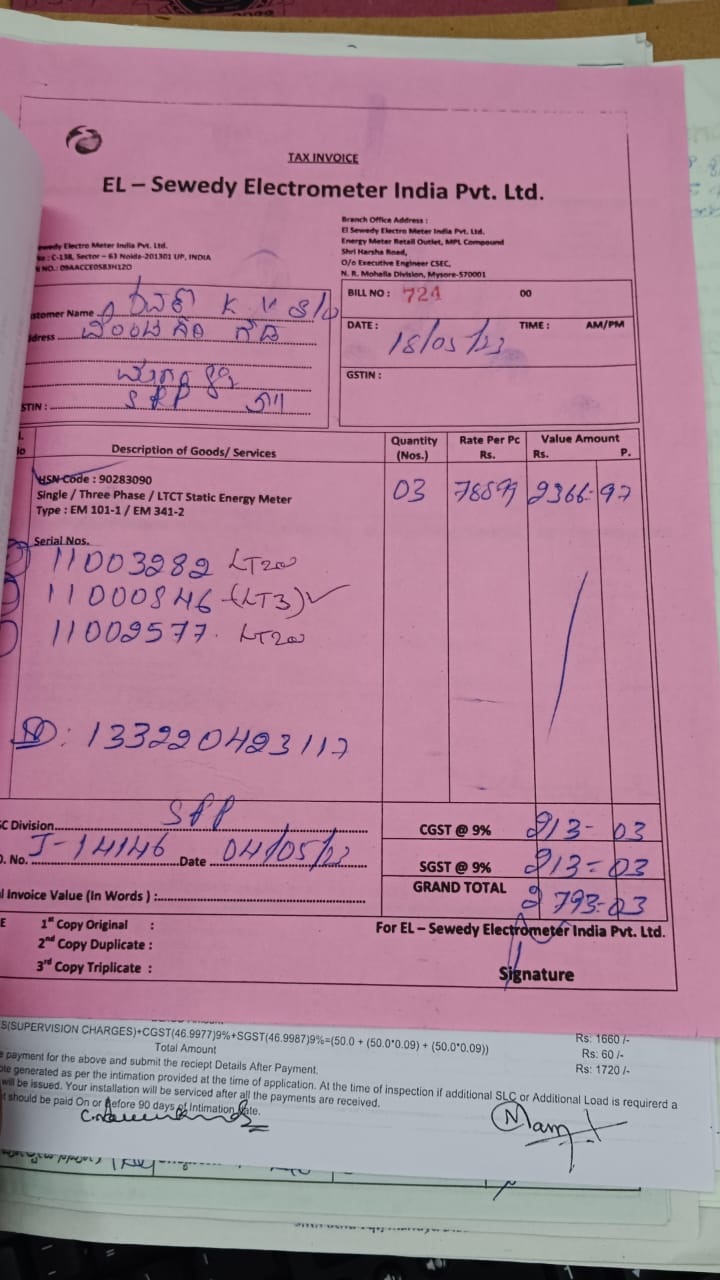 TAX INVOICE
EL – Sewedy Electrometer India Pvt. Ltd.
wedy Electro Meter India Pvt. Ltd.
: C-138, Sector – 63 Noida-201301 UP, INDIA
NO.: 09AACCE0583H1Z0
Branch Office Address :
El Sewedy Electro Meter India Pvt. Ltd.
Energy Meter Retail Outlet, MPL Compound
Shri Harsha Road,
O/o Executive Engineer CSEC,
N. R. Mohalla Division, Mysore-570001
stomer Name K V S/o
dress
STIN : SRP
BILL NO : 724 00
DATE : 18/05/23 TIME : AM/PM
GSTIN :
Description of Goods/ Services Quantity (Nos.) Rate Per Pc Rs. Value Amount Rs. P.
HSN Code : 90283090
Single / Three Phase / LTCT Static Energy Meter
Type : EM 101-1 / EM 341-2
03 78899 2366-97
Serial Nos.
11003282 LT2a
11000846 (LT3)
11002577 LT2a
: 133220423117
C Division SRP
CGST @ 9% 213-03
. No. J-14146 Date 04/05/23
SGST @ 9% 213=03
l Invoice Value (In Words ) :
GRAND TOTAL 2793-03
E 1st Copy Original :
2nd Copy Duplicate :
3rd Copy Triplicate :
For EL – Sewedy Electrometer India Pvt. Ltd.
Signature
S(SUPERVISION CHARGES)+CGST(46.9977)9%+SGST(46.9987)9%=(50.0 + (50.0*0.09) + (50.0*0.09))
Rs: 1660 /-
Total Amount Rs: 60 /-
Rs: 1720 /-
e payment for the above and submit the reciept Details After Payment.
ote generated as per the intimation provided at the time of application. At the time of inspection if additional SLC or Additional Load is requirerd a
will be issued. Your installation will be serviced after all the payments are received.
t should be paid On or Before 90 days of Intimation date.